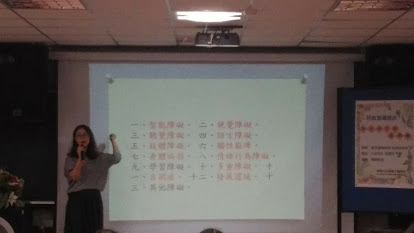 一、智能障礙。二、視覺障礙。
三、聽覺障礙。四、語言障礙。
五、肢體障礙。六、腦性麻痺。
七、身體病弱。八、情緒行為障礙。
九、學習障礙。十、多重障礙。十
一、自閉症。十二、發展遲緩。十
三、其他障礙。